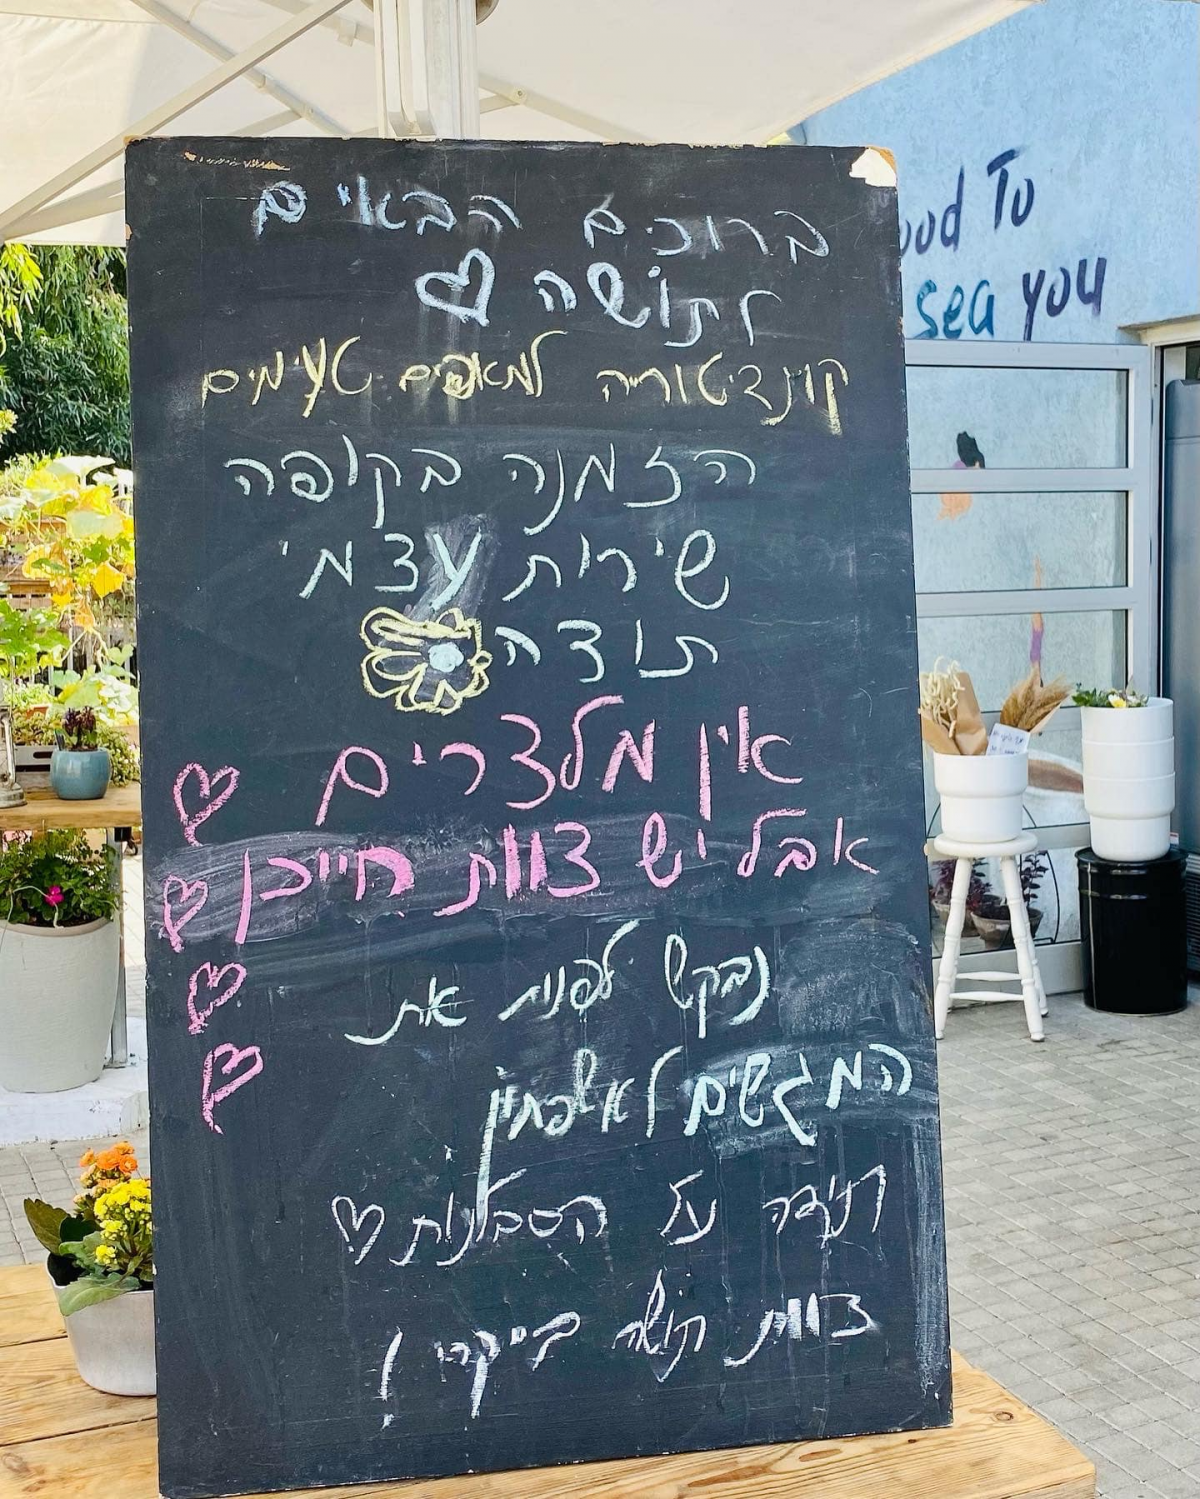 ברוכים הבאים
לתושה ♡
קונדיטוריה למאפים טעימים
הזמנה בקופה
שירות עצמי
תודה
אין מלצרים
אבל יש צוות חייכן
נבקש לפנות את
המגשים לאשפתון
תודה על הסבלנות ♡
צוות תושה
ood To
sea you